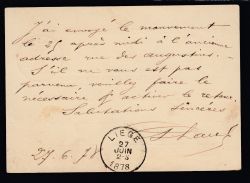 J'ai envoyé le mouvement
le 25 après midi à l'ancienne
adresse rue des augustins. -
S'il ne vous est pas
parvenu, veuillez faire le
nécessaire & activer le retour.
Salutations sincères
27.6.78
LIEGE
27
JUIN
2-S
1878